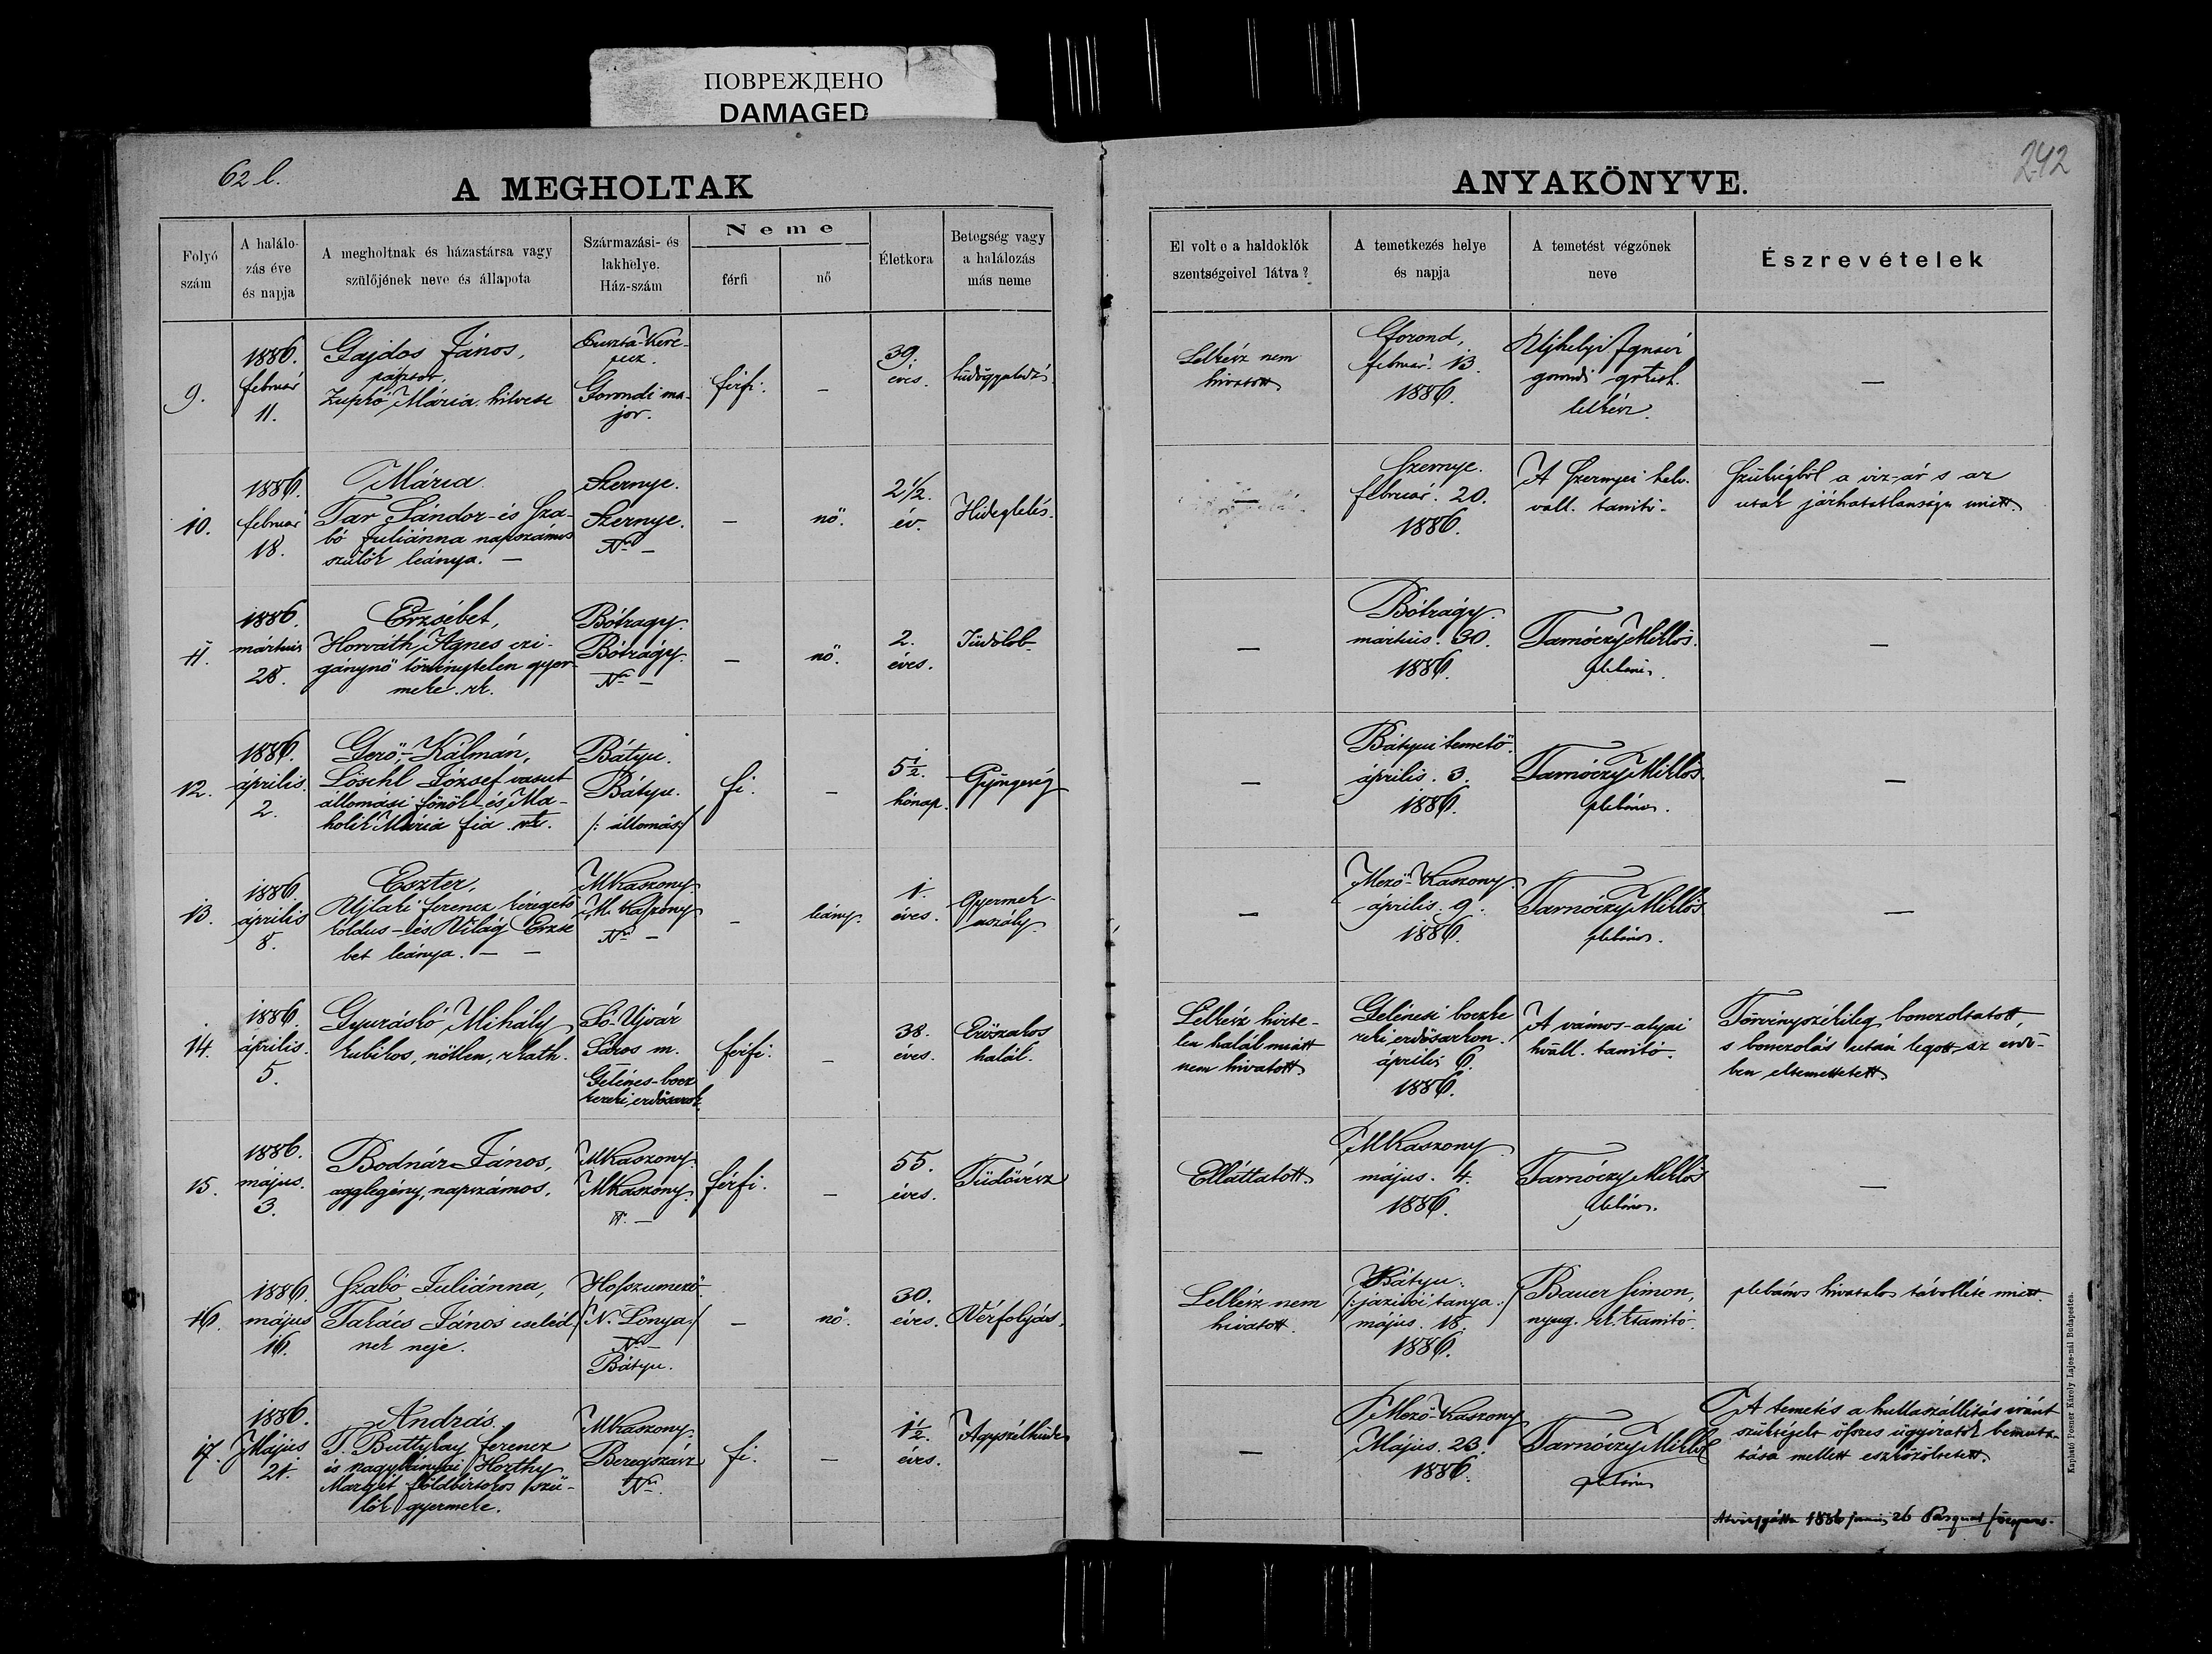 ПОВРЕЖДЕНО
DAMAGED
62 l.
242
A MEGHOLTAK
ANYAKÖNYVE.
Folyó
szám
A halálo-
zás éve
és napja
A megholtnak és házastársa vagy
szülőjének neve és állapota
Származási- és
lakhelye.
Ház-szám
Neme
férfi
nő
Életkora
Betegség vagy
a halálozás
más neme
El volt e a haldoklók
szentségeivel látva?
A temetkezés helye
és napja
A temetést végzőnek
neve
Észrevételek
9.
1886.
február
11.
Gajdos János,
pásztor,
Zupkó Mária hitvese
Puszta-Kere-
Gorondi ma-
jor.
férfi.
—
39.
éves.
Lelkész nem
hivatott
Gorond,
február. 13.
1886.
Ujhelyi
gorondi
lelkész.
—
10.
1886.
február
18.
Mária.
Tar Sándor- és Sza-
bó Juliánna napszámos
szülők leánya. —
Szernye.
Szernye.
Nr. —
—
nő.
2 1/2.
év.
Hideglelés.
—
Szernye.
február. 20.
1886.
A Szernyei helv.
vall. tanitó.
Szükségből a viz-ár s az
utak járhatatlansága miatt.
11.
1886.
mártius
28.
Erzsébet,
Horváth Ágnes czi-
gánynő törvénytelen gyer-
meke. rk.
Bótragy.
Bótrágy.
Nr. —
—
nő.
2.
éves.
Tüdőlob
—
Bótrágy.
mártius. 30.
1886.
Tarnóczy Miklós.
plebános.
—
12.
1886.
április.
2.
Gerő-Kálmán,
Löschl József vasut
állomási főnök és Ma-
holik Mária fia. rk.
Bátyu.
Bátyu.
/: állomás:/
fi.
—
5 1/2.
hónap.
Gyöngeség
—
Bátyui temető.
április. 3.
1886.
Tarnóczy Miklós
plebános.
—
13.
1886.
április
8.
Eszter,
Ujlaki ferencz kéregető
koldus- és Világ Erzse
bet leánya. — —
MKaszony
M. Kaszony
Nr. —
—
leány.
1.
éves.
Gyermek-
aszály.
—
Mező-Kaszony.
április. 9.
1886.
Tarnóczy Miklós
plebános.
—
14.
1886.
április.
5.
Gyuráskó Mihály
kubikos, nőtlen, r. kath.
Só-Ujvár
Sáros m.
Gelénes-bocz
kereki erdősarok
férfi.
—
38.
éves.
Erőszakos
halál.
Lelkész hirte-
len halál miatt
nem hivatott
Gelénesi boczke
reki erdősarkon.
április 6.
1886.
A vámos-atyai
hvall. tanitó.
Törvényszékileg bonczoltatott,
s bonczolás után legott az erdő-
ben eltemettetett.
15.
1886.
május.
3.
Bodnár János,
agglegény, napszámos.
MKaszony.
MKaszony.
Nr. —
férfi.
—
55.
éves.
Tüdővész
Elláttatott.
MKaszony
május. 4.
1886.
Tarnóczy Miklós
plebános.
—
16.
1886.
május
16.
Szabó Juliánna,
Takács János cseléd-
nek neje.
Hosszumező
/N. Lónya:/
Nr. —
Bátyu.
—
nő.
30.
éves.
Vérfolyás.
Lelkész nem
hivatott.
Bátyu.
tanya:/
május. 18.
1886.
Bauer Simon,
nyug. tanitó.
plebános hivatalos távolléte miatt.
17.
1886.
Május
21.
András.
T. Buttykay ferencz
és nagybányai Horthy
Margit földbirtokos szü-
lők gyermeke.
MKaszony
Beregszász
Nr.
fi.
—
1 1/2.
éves.
Agyszélhüdés
—
Mező-Kaszony
Május. 23.
1886.
Tarnóczy Miklós
plebános
A temetés a hullaszállitás iránt
szükségelt összes ügyiratok bemuta-
tása mellett eszközöltetett.
1886 junius 26
Kapható Posner Károly Lajos-nál Budapesten.